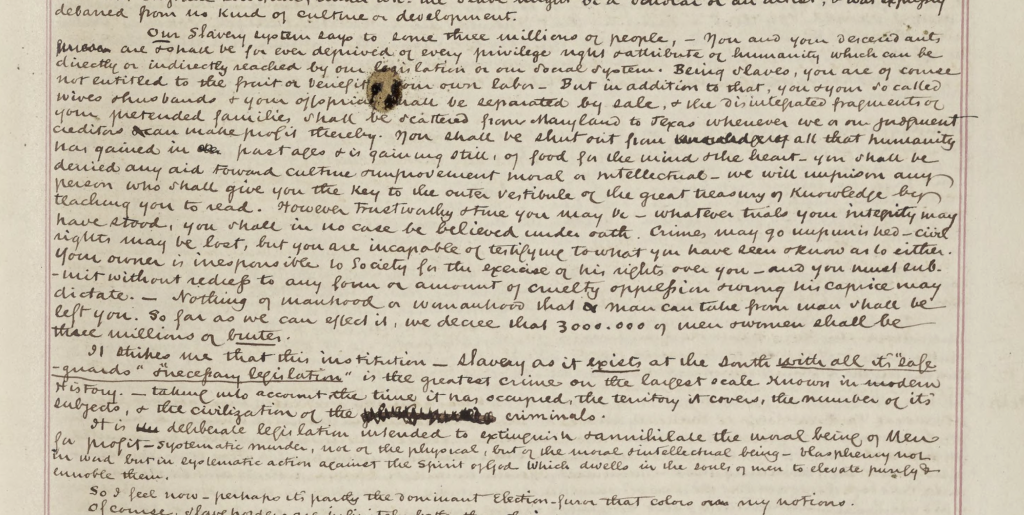 debarred from no kind of culture or development.
Our Slavery system says to some three millions of people, – You and your descendants
are & shall be for ever deprived of every privilege right & attribute of humanity which can be
directly or indirectly reached by our legislation or our social system. Being slaves, you are of course
not entitled to the fruit or benefit your own labor – But in addition to that, you & your so called
wives & husbands & your offspring shall be separated by sale, & the disintegrated fragments of
your pretended families shall be scattered from Maryland to Texas whenever we or our judgment
creditors can make profit thereby. You shall be shut out from all that humanity
has gained in past ages & is gaining still, of food for the mind & the heart – you shall be
denied any aid toward culture or improvement moral or intellectual – we will imprison any
person who shall give you the key to the outer vestibule of the great treasury of Knowledge by
teaching you to read. However trustworthy & true you may be – whatever trials your integrity may
have stood, you shall in no case be believed under oath. Crimes may go unpunished – civil
rights may be lost, but you are incapable of testifying to what you have seen & know as to either.
Your owner is irresponsible to Society for the exercise of his rights over you – and you must sub-
-mit without redress to any form or amount of cruelty oppression & wrong his caprice may
dictate. – Nothing of manhood or womanhood that man can take from man shall be
left you. So far as we can effect it, we decree that 3000.000 of men & women shall be
three millions of brutes.
It strikes me that this institution – slavery as it exists at the South with all its "safe
-guards" & "necessary legislation" is the greatest crime on the largest scale known in modern
History. – taking into account the time it has occupied, the territory it covers, the number of its
subjects, & the civilization of the criminals.
It is deliberate legislation intended to extinguish & annihilate the moral being of Men
for profit – systematic murder, not of the physical, but of the moral & intellectual being – blasphemy not
in word but in systematic action against the Spirit of God which dwells in the souls of men to elevate purify &
ennoble them.
So I feel now – perhaps its partly the dominant Election-furor that colors my notions.
Of course, slaveholders are